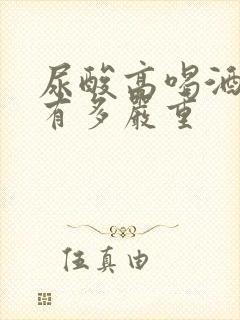 尿酸高喝酒
有多严重
伍真由